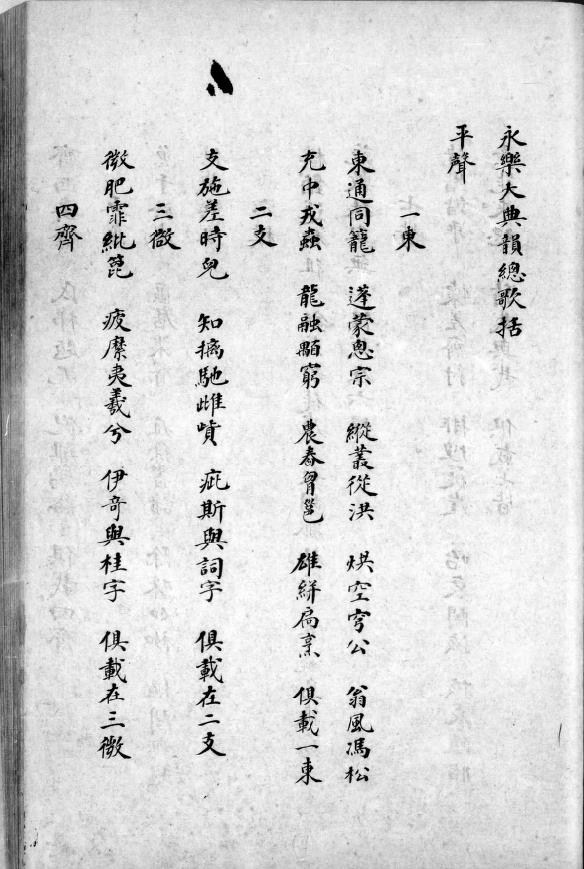 永樂大典韻總歌括
平聲
一東
東通同籠 蓬蒙悤宗 縱叢從洪 烘空穹公 翁風馮松
充中戎蟲 龍融顒窮 農舂胷邕 雄絣扃烹 俱載一東
二支
支施差時兒 知摛馳雌 疵斯與詞字 俱載在二支
三微
微肥霏紕箆 疲縻夷羲兮 伊奇與桂字 俱載在三微
四齊